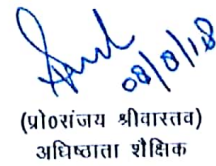 08/8/18
(प्रो०संजय श्रीवास्तव)
अधिष्ठाता शैक्षिक